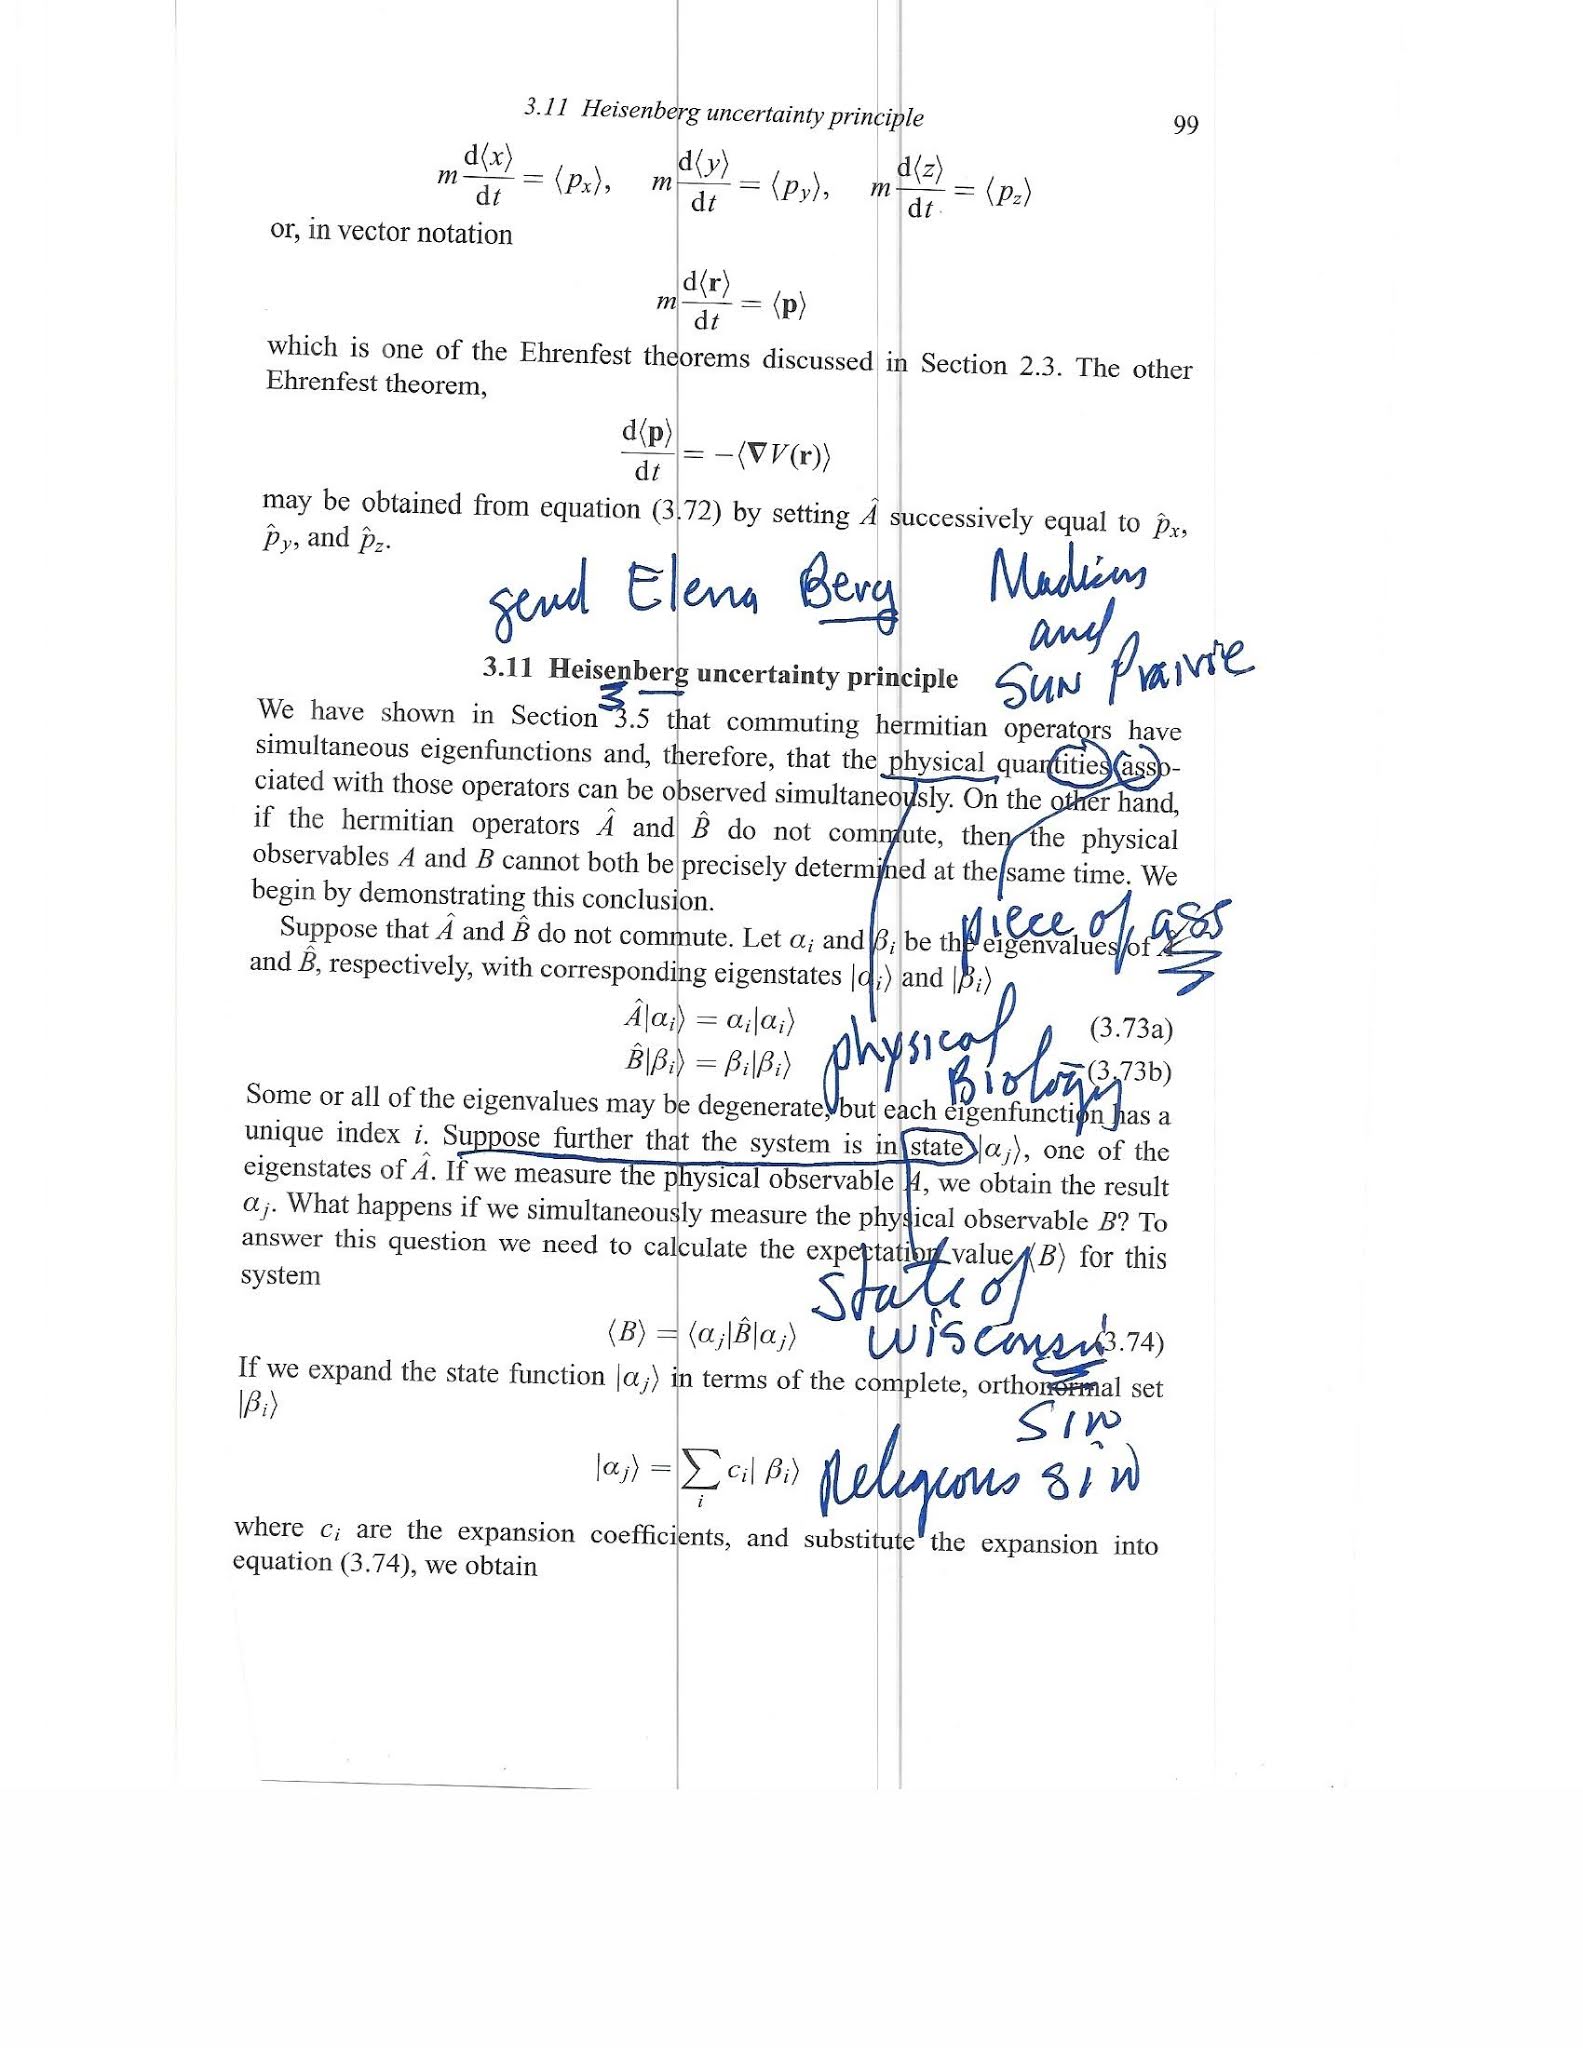 3.11 Heisenberg uncertainty principle 99
m d⟨x⟩/dt = ⟨pₓ⟩, m d⟨y⟩/dt = ⟨p_y⟩, m d⟨z⟩/dt = ⟨p_z⟩
or, in vector notation
m d⟨r⟩/dt = ⟨p⟩
which is one of the Ehrenfest theorems discussed in Section 2.3. The other
Ehrenfest theorem,
d⟨p⟩/dt = −⟨∇V(r)⟩
may be obtained from equation (3.72) by setting Â successively equal to p̂ₓ,
p̂_y, and p̂_z.
send Elena Berg
Madison
and
SUN Prairie
3.11 Heisenberg uncertainty principle
We have shown in Section 3.5 that commuting hermitian operators have
simultaneous eigenfunctions and, therefore, that the physical quantities asso-
ciated with those operators can be observed simultaneously. On the other hand,
if the hermitian operators Â and B̂ do not commute, then the physical
observables A and B cannot both be precisely determined at the same time. We
begin by demonstrating this conclusion.
piece of ass
Suppose that Â and B̂ do not commute. Let αᵢ and βᵢ be the eigenvalues of Â
and B̂, respectively, with corresponding eigenstates |αᵢ⟩ and |βᵢ⟩
Â|αᵢ⟩ = αᵢ|αᵢ⟩ (3.73a)
B̂|βᵢ⟩ = βᵢ|βᵢ⟩ (3.73b)
physical
Biology
Some or all of the eigenvalues may be degenerate, but each eigenfunction has a
unique index i. Suppose further that the system is in state |αⱼ⟩, one of the
eigenstates of Â. If we measure the physical observable A, we obtain the result
αⱼ. What happens if we simultaneously measure the physical observable B? To
answer this question we need to calculate the expectation value ⟨B⟩ for this
system
State of
Wisconsin
⟨B⟩ = ⟨αⱼ|B̂|αⱼ⟩ (3.74)
If we expand the state function |αⱼ⟩ in terms of the complete, orthonormal set
|βᵢ⟩
SIN
|αⱼ⟩ = ∑ᵢ cᵢ| βᵢ⟩
Religious sin
where cᵢ are the expansion coefficients, and substitute the expansion into
equation (3.74), we obtain